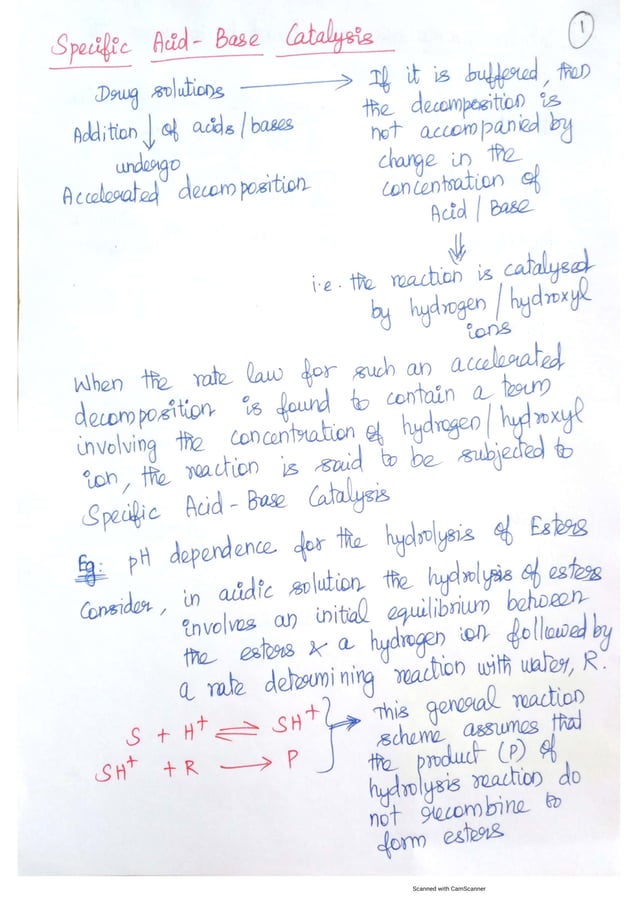 Specific Acid-Base Catalysis
1
Drug solutions →
Addition ↓ of acids/bases
undergo
Accelerated decomposition
If it is buffered, then
the decomposition is
not accompanied by
change in the
concentration of
Acid/Base
⇓
i.e. the reaction is catalysed
by hydrogen/hydroxyl
ions
When the rate law for such an accelerated
decomposition is found to contain a term
involving the concentration of hydrogen/hydroxyl
ion, the reaction is said to be subjected to
Specific Acid-Base Catalysis
Eg: pH dependence for the hydrolysis of Esters
Consider, in acidic solution the hydrolysis of esters
involves an initial equilibrium between
the esters & a hydrogen ion followed by
a rate determining reaction with water, R.
S + H⁺ ⇌ SH⁺
SH⁺ + R → P
→ This general reaction
scheme assumes that
the product (P) of
hydrolysis reaction do
not recombine to
form esters
Scanned with CamScanner